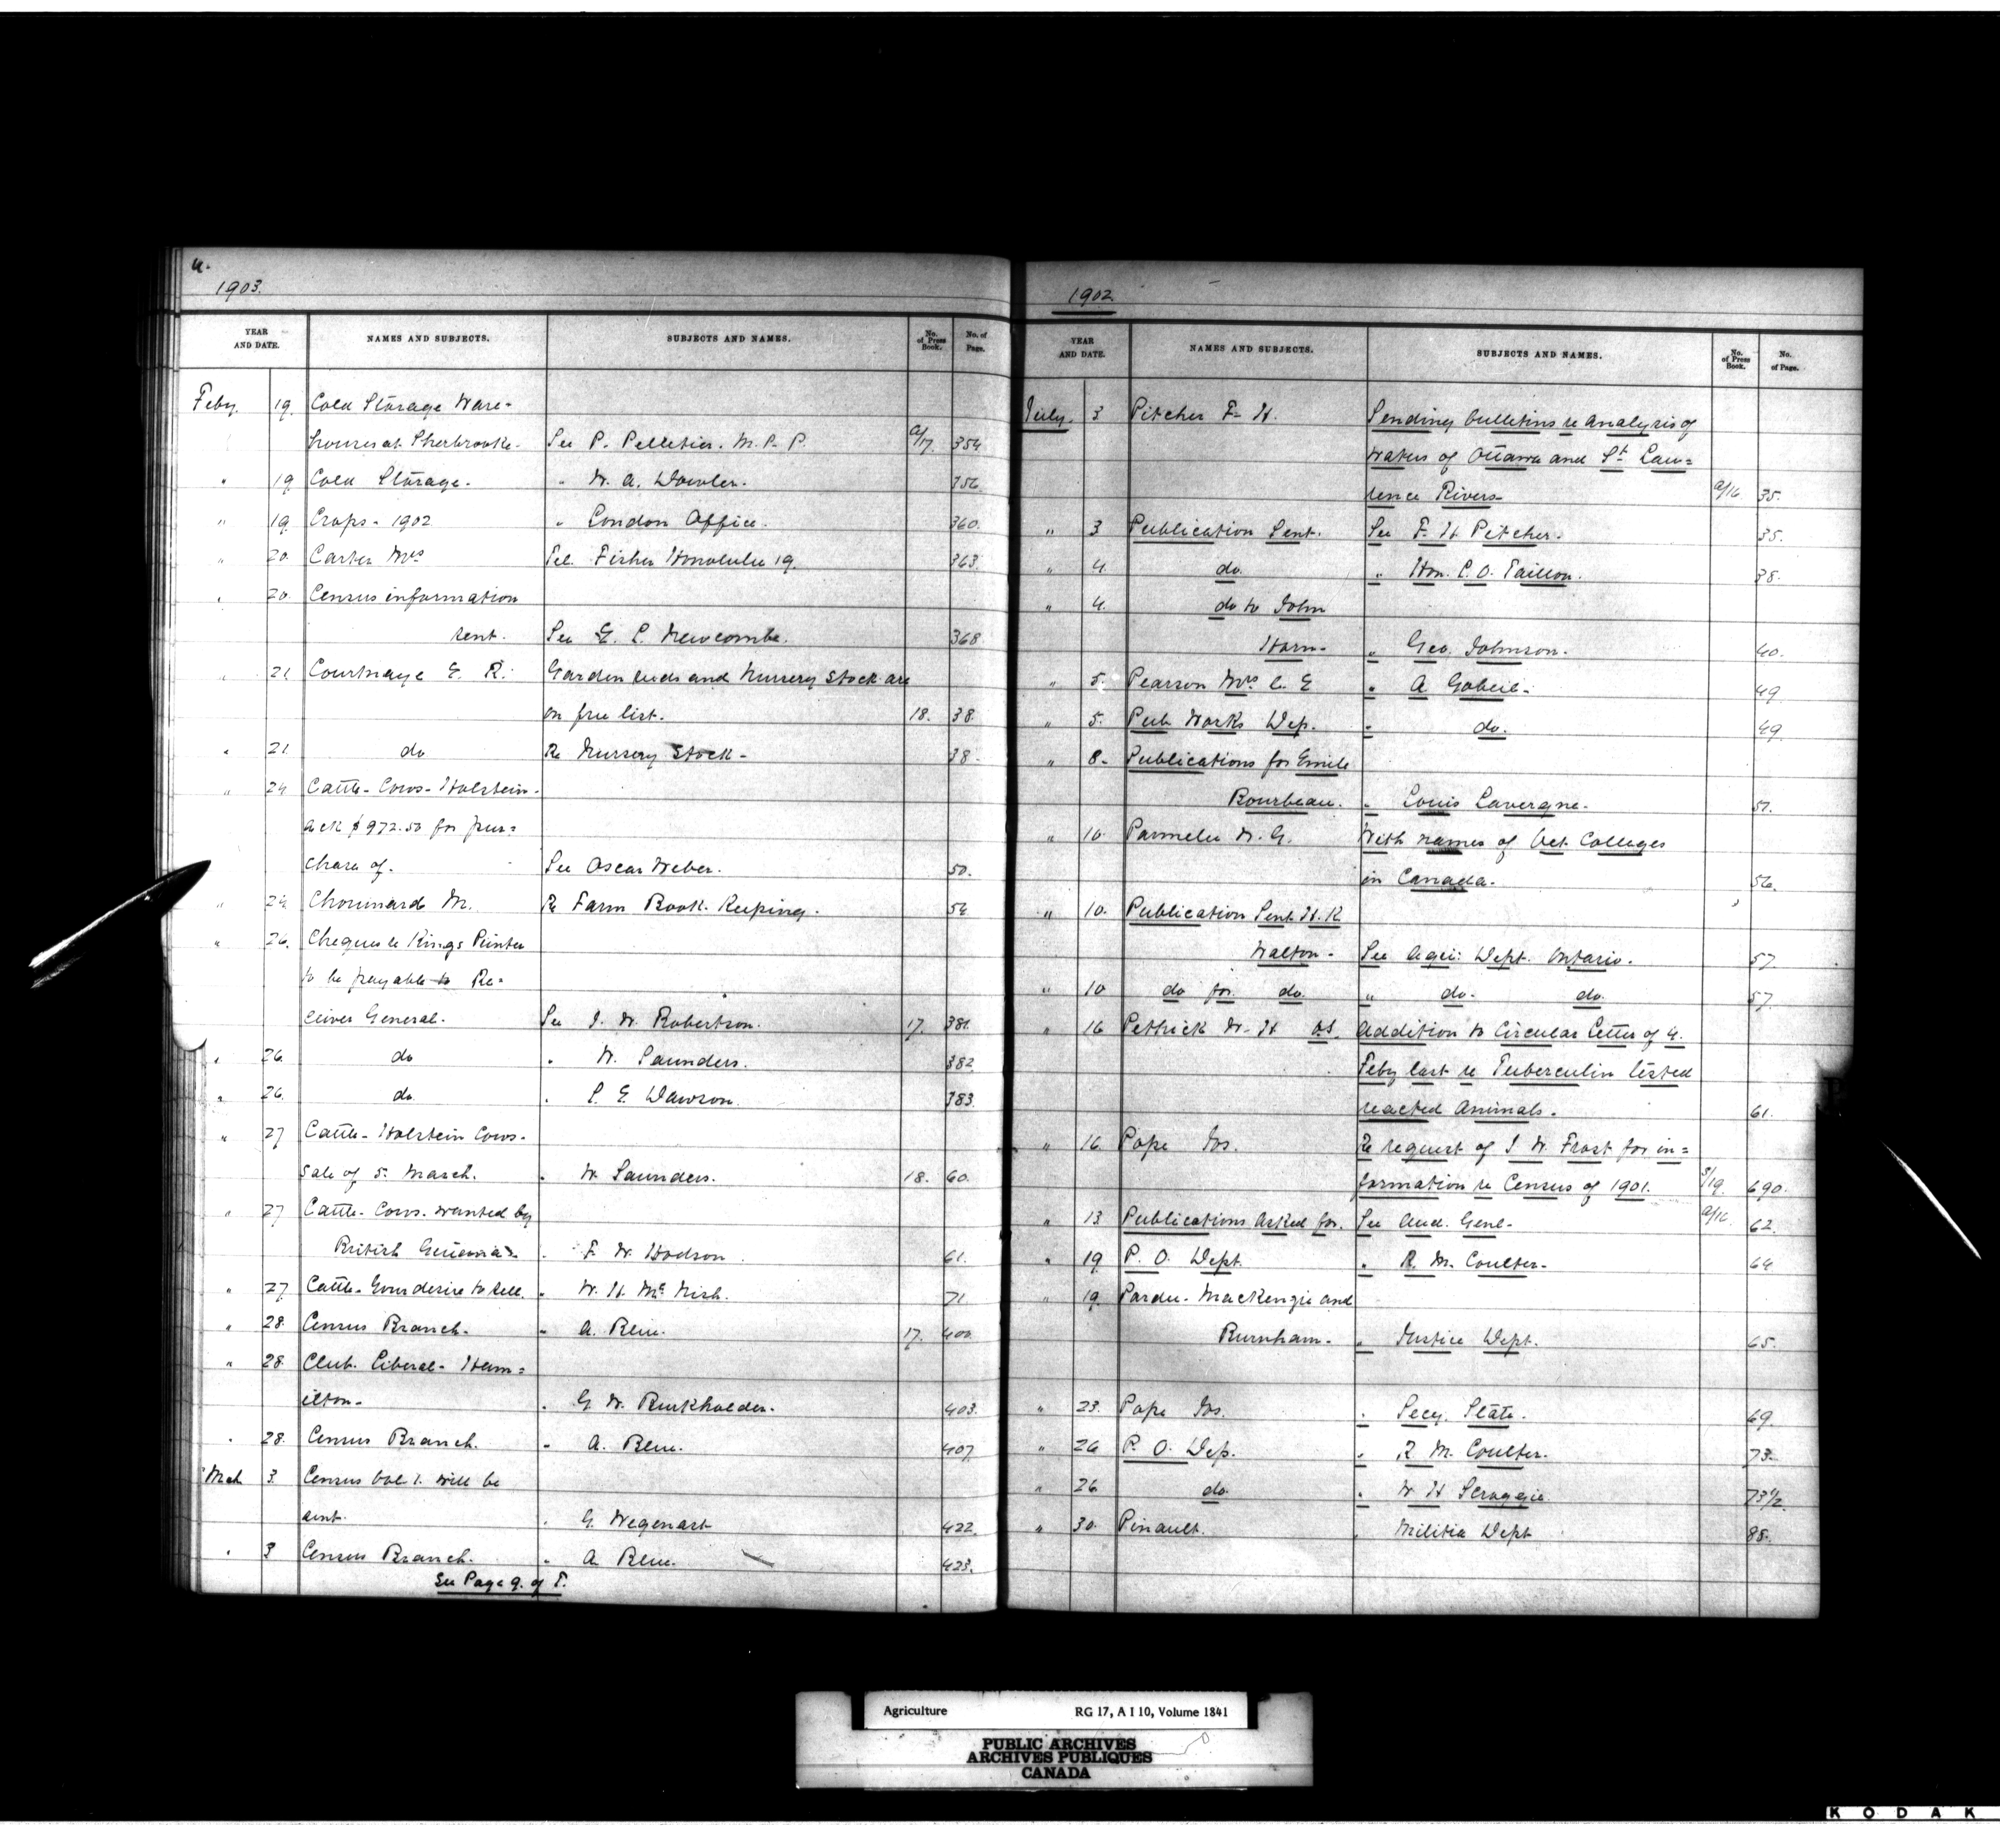 1903.
YEAR AND DATE. NAMES AND SUBJECTS. SUBJECTS AND NAMES. No. of Press Book. No. of Page.
Feby. 19. Cold Storage Ware-
houses at Sherbrooke. See P. Pelletier. M. P. P. A/17. 354
" 19 Cold Storage. " W. A. Dowler. 356
" 19. Crops - 1902 " London Office. 360.
" 20. Carter Mrs Tel. Fisher Honolulu 19. 363.
" 20. Census information
sent. See G. C. Newcombe. 368
" 21 Courtnaye E. R. Garden seeds and Nursery Stock are
on free list. 18. 38.
" 21. do Re Nursery Stock - 38.
" 24 Cattle - Cows - Holstein -
ack $972.50 for pur=
chase of. See Oscar Weber. 50.
" 24. Chouinard M. Re Farm Book Keeping. 54
" 26. Cheques to Kings Printer
to be payable to Re=
ceiver General. See J. W. Robertson. 17. 381.
" 26. do " W. Saunders. 382
" 26. do " S. E. Dawson. 383
" 27 Cattle - Holstein Cows.
Sale of 5. March. " W. Saunders. 18. 60.
" 27 Cattle - Cows. wanted by
British " F. W. Hodson. 61.
" 27. Cattle - desire to sell. " W. H. McNish. 71.
" 28. Census Branch. " A. Blue. 17. 400.
" 28. Club. Liberal - Ham=
ilton - " G. W. Burkholder. 403.
" 28. Census Branch. " A. Blue. 407.
Mch 3. Census Vol 1. will be
sent. " G. Wegenast 422.
" 3 Census Branch. " A. Blue. 423.
See Page 9. of T.
1902
YEAR AND DATE. NAMES AND SUBJECTS. SUBJECTS AND NAMES. No. of Press Book. No. of Page.
July. 3 Pitcher F. H. Sending bulletins re analysis of
waters of Ottawa and St Law=
rence Rivers - A/16. 35.
" 3 Publication Sent. See F. H. Pitcher. 35.
" 4. do. " Hon. L. O. Taillon. 38.
" 4. do to John
Horn - " Geo. Johnson. 40.
" 5. Pearson Mrs C. E " A Gobeil - 49
" 5. Pub Works Dep. " do. 49
" 8. Publications for Emile
Bourbeau. " Louis Lavergne. 51.
" 10. Parmelee W. G. With names of Vet. Colleges
in Canada. 56.
" 10. Publication Sent H. K
Walton - See Agri: Dept. Ontario. 57.
" 10 do for do. " do. do. 57.
" 16 Pethick W. H VS. Addition to Circular Letter of 4.
Feby last re Tuberculin tested
reacted Animals. 61.
" 16. Pope Jos. Re request of J. W. Frost for in=
formation re Census of 1901. S/19. 690.
" 13 Publications asked for. See Aud. Genl - A/16. 62
" 19 P. O. Dept. " R. M. Coulter - 64
" 19. Pardee - Mackenzie and
Burnham - " Justice Dept. 65.
" 23. Pope Jos. " Secy. State. 69
" 26 P. O. Dep. " R M. Coulter. 73.
" 26 do. " W H Scroggie. 73 1/2
" 30. Pinault. " Militia Dept 88.
Agriculture RG 17, A I 10, Volume 1841
PUBLIC ARCHIVES
ARCHIVES PUBLIQUES
CANADA
KODAK